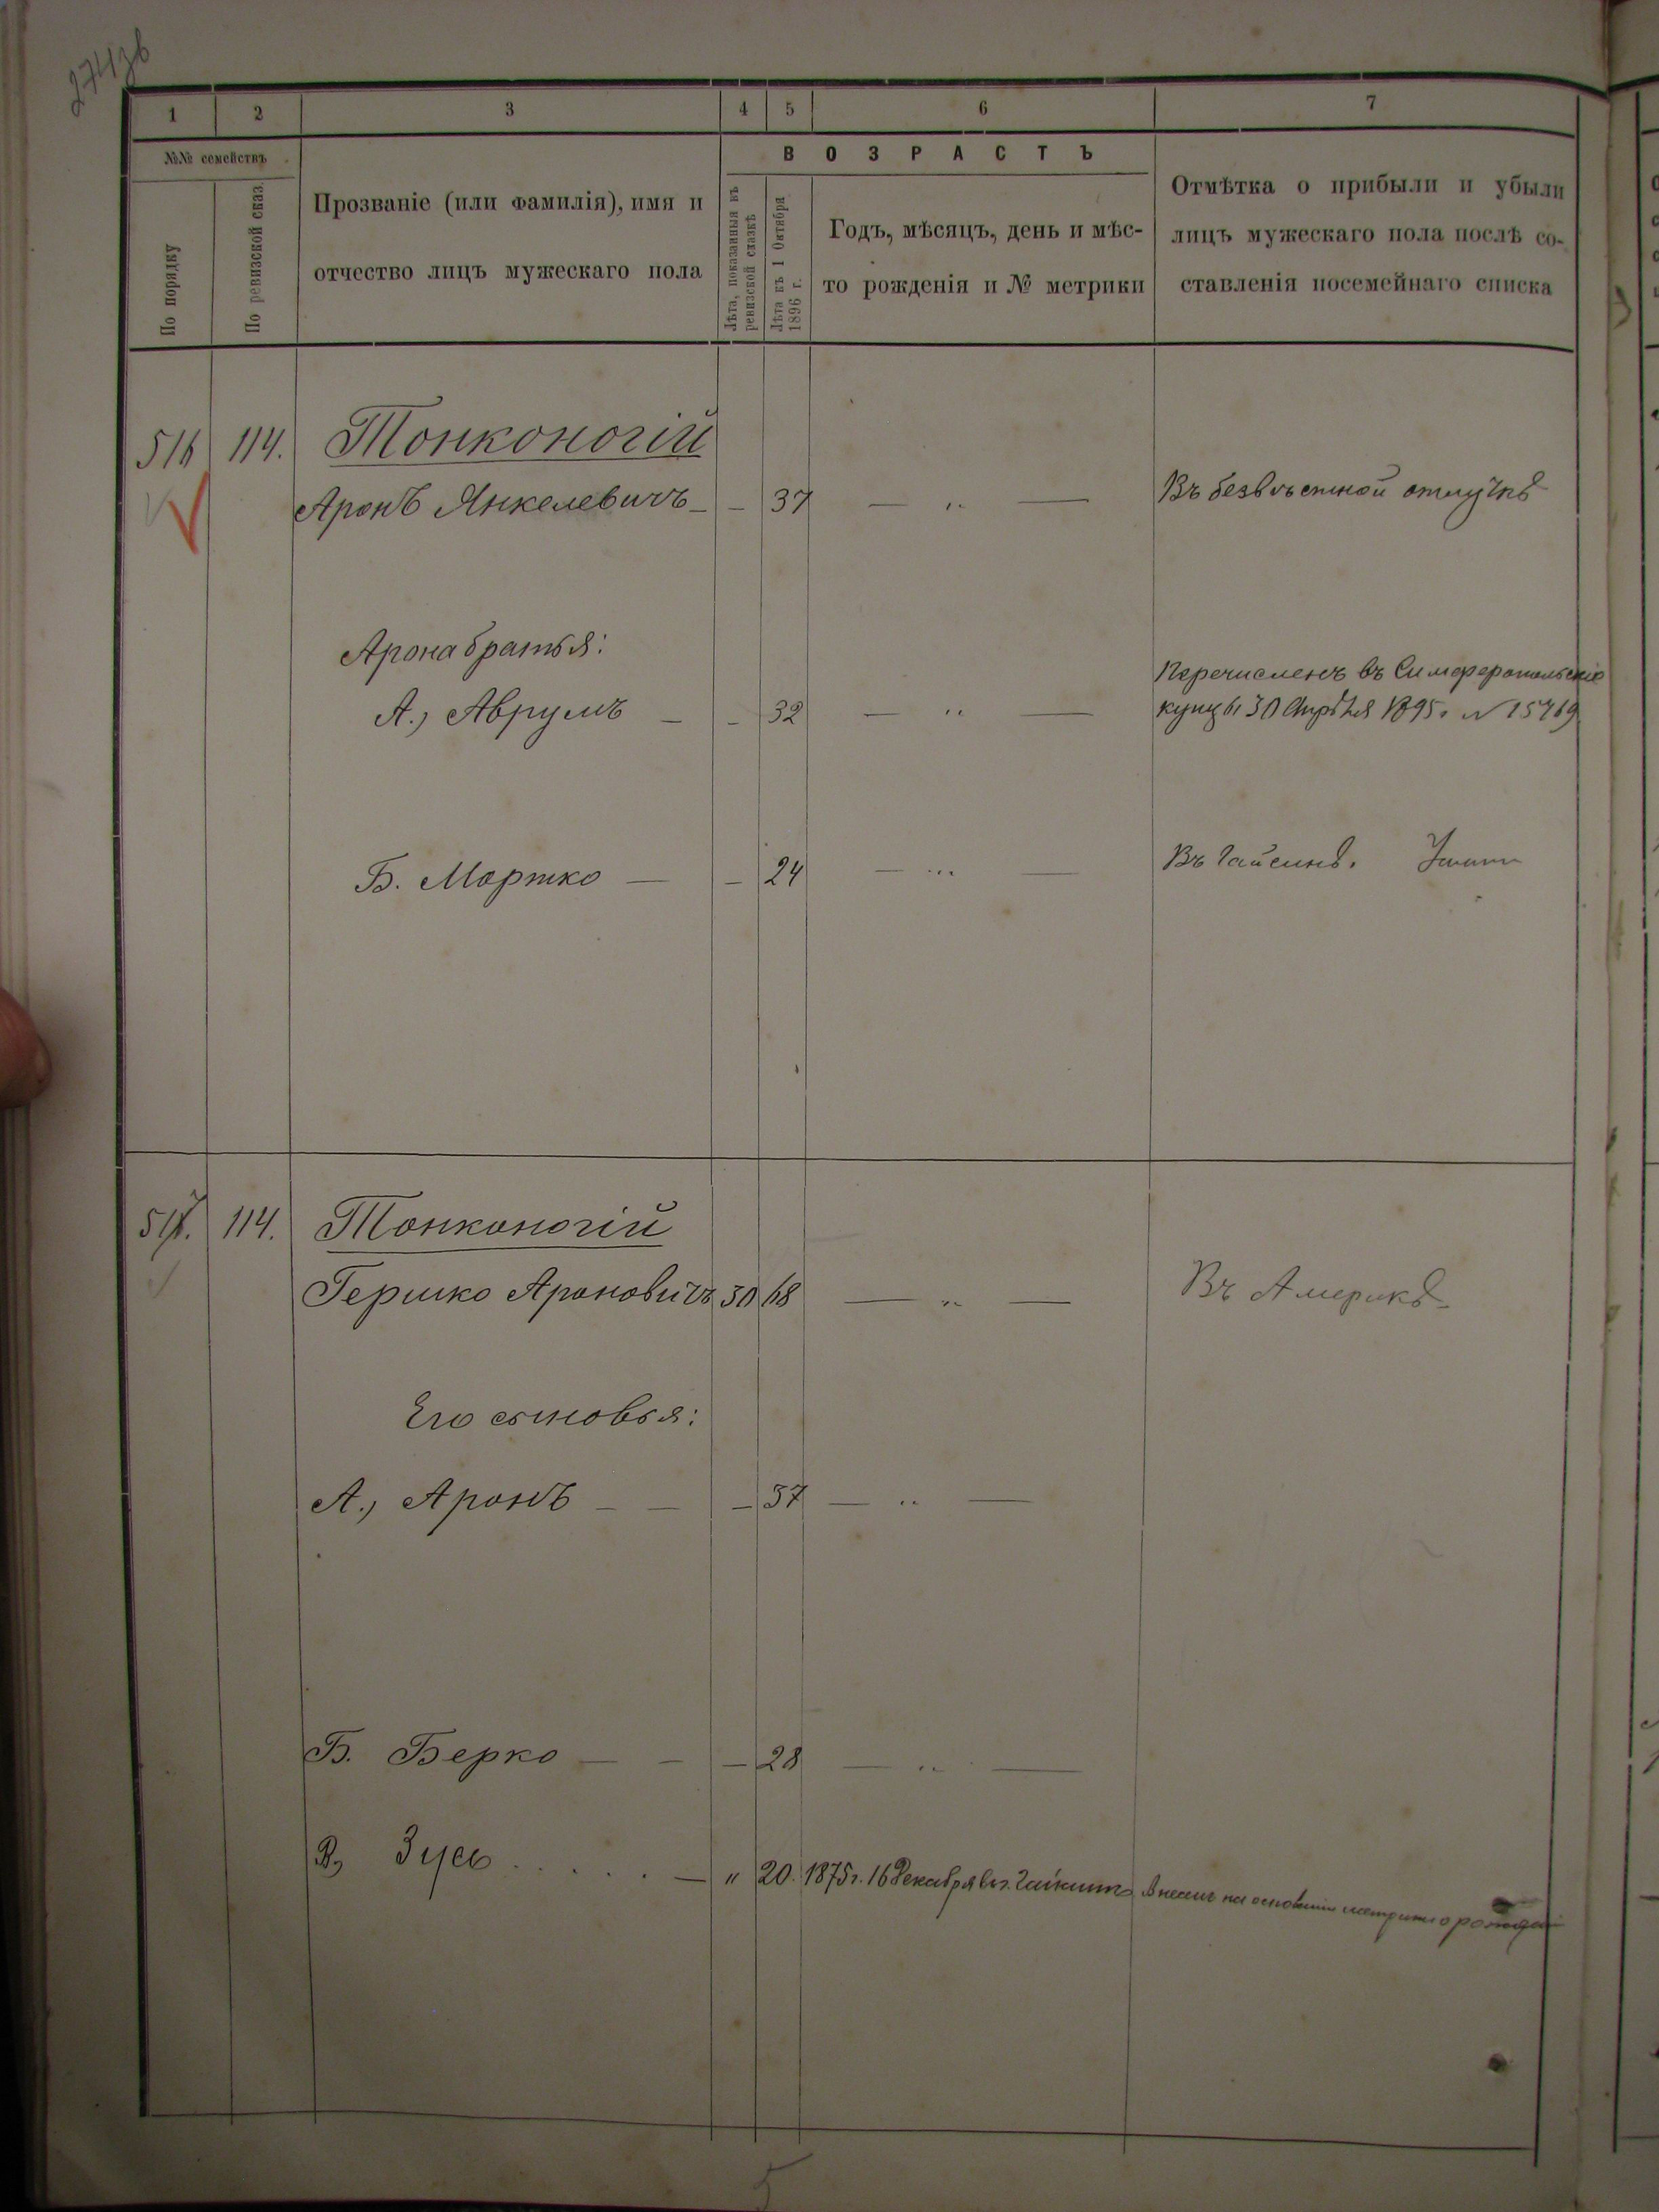 274зв
1 2 3 4 5 6 7
№№ семействъ
По порядку
По ревизской сказ.
Прозваніе (или фамилія), имя и
отчество лицъ мужескаго пола
ВОЗРАСТЪ
Лѣта, показанныя въ
ревизской сказкѣ
Лѣта къ 1 Октября
1896 г.
Годъ, мѣсяцъ, день и мѣс-
то рожденія и № метрики
Отмѣтка о прибыли и убыли
лицъ мужескаго пола послѣ со-
ставленія посемейнаго списка
516 114. Тонконогій
Аронъ Янкелевичъ — — 37 — „ — Въ безвѣстной отлучкѣ
Арона братья:
Перечисленъ въ Симферопольскіе
А., Аврумъ — — 32 — „ — купцы 30 Апрѣля 1895. № 15769
Б. Мортко — — 24 — „ — Въ Гайсинѣ.
517. 114. Тонконогій
Гершко Ароновичъ 30 68 — „ — Въ Америкѣ
Его сыновья:
А., Аронъ — — — 37 — „ —
Б. Берко — — — 28 — „ —
В, Зусь . . . . . — „ 20. 1875г. 16 Декабря въ г. Гайсинѣ Внесенъ на основаніи метрики о рожденіи